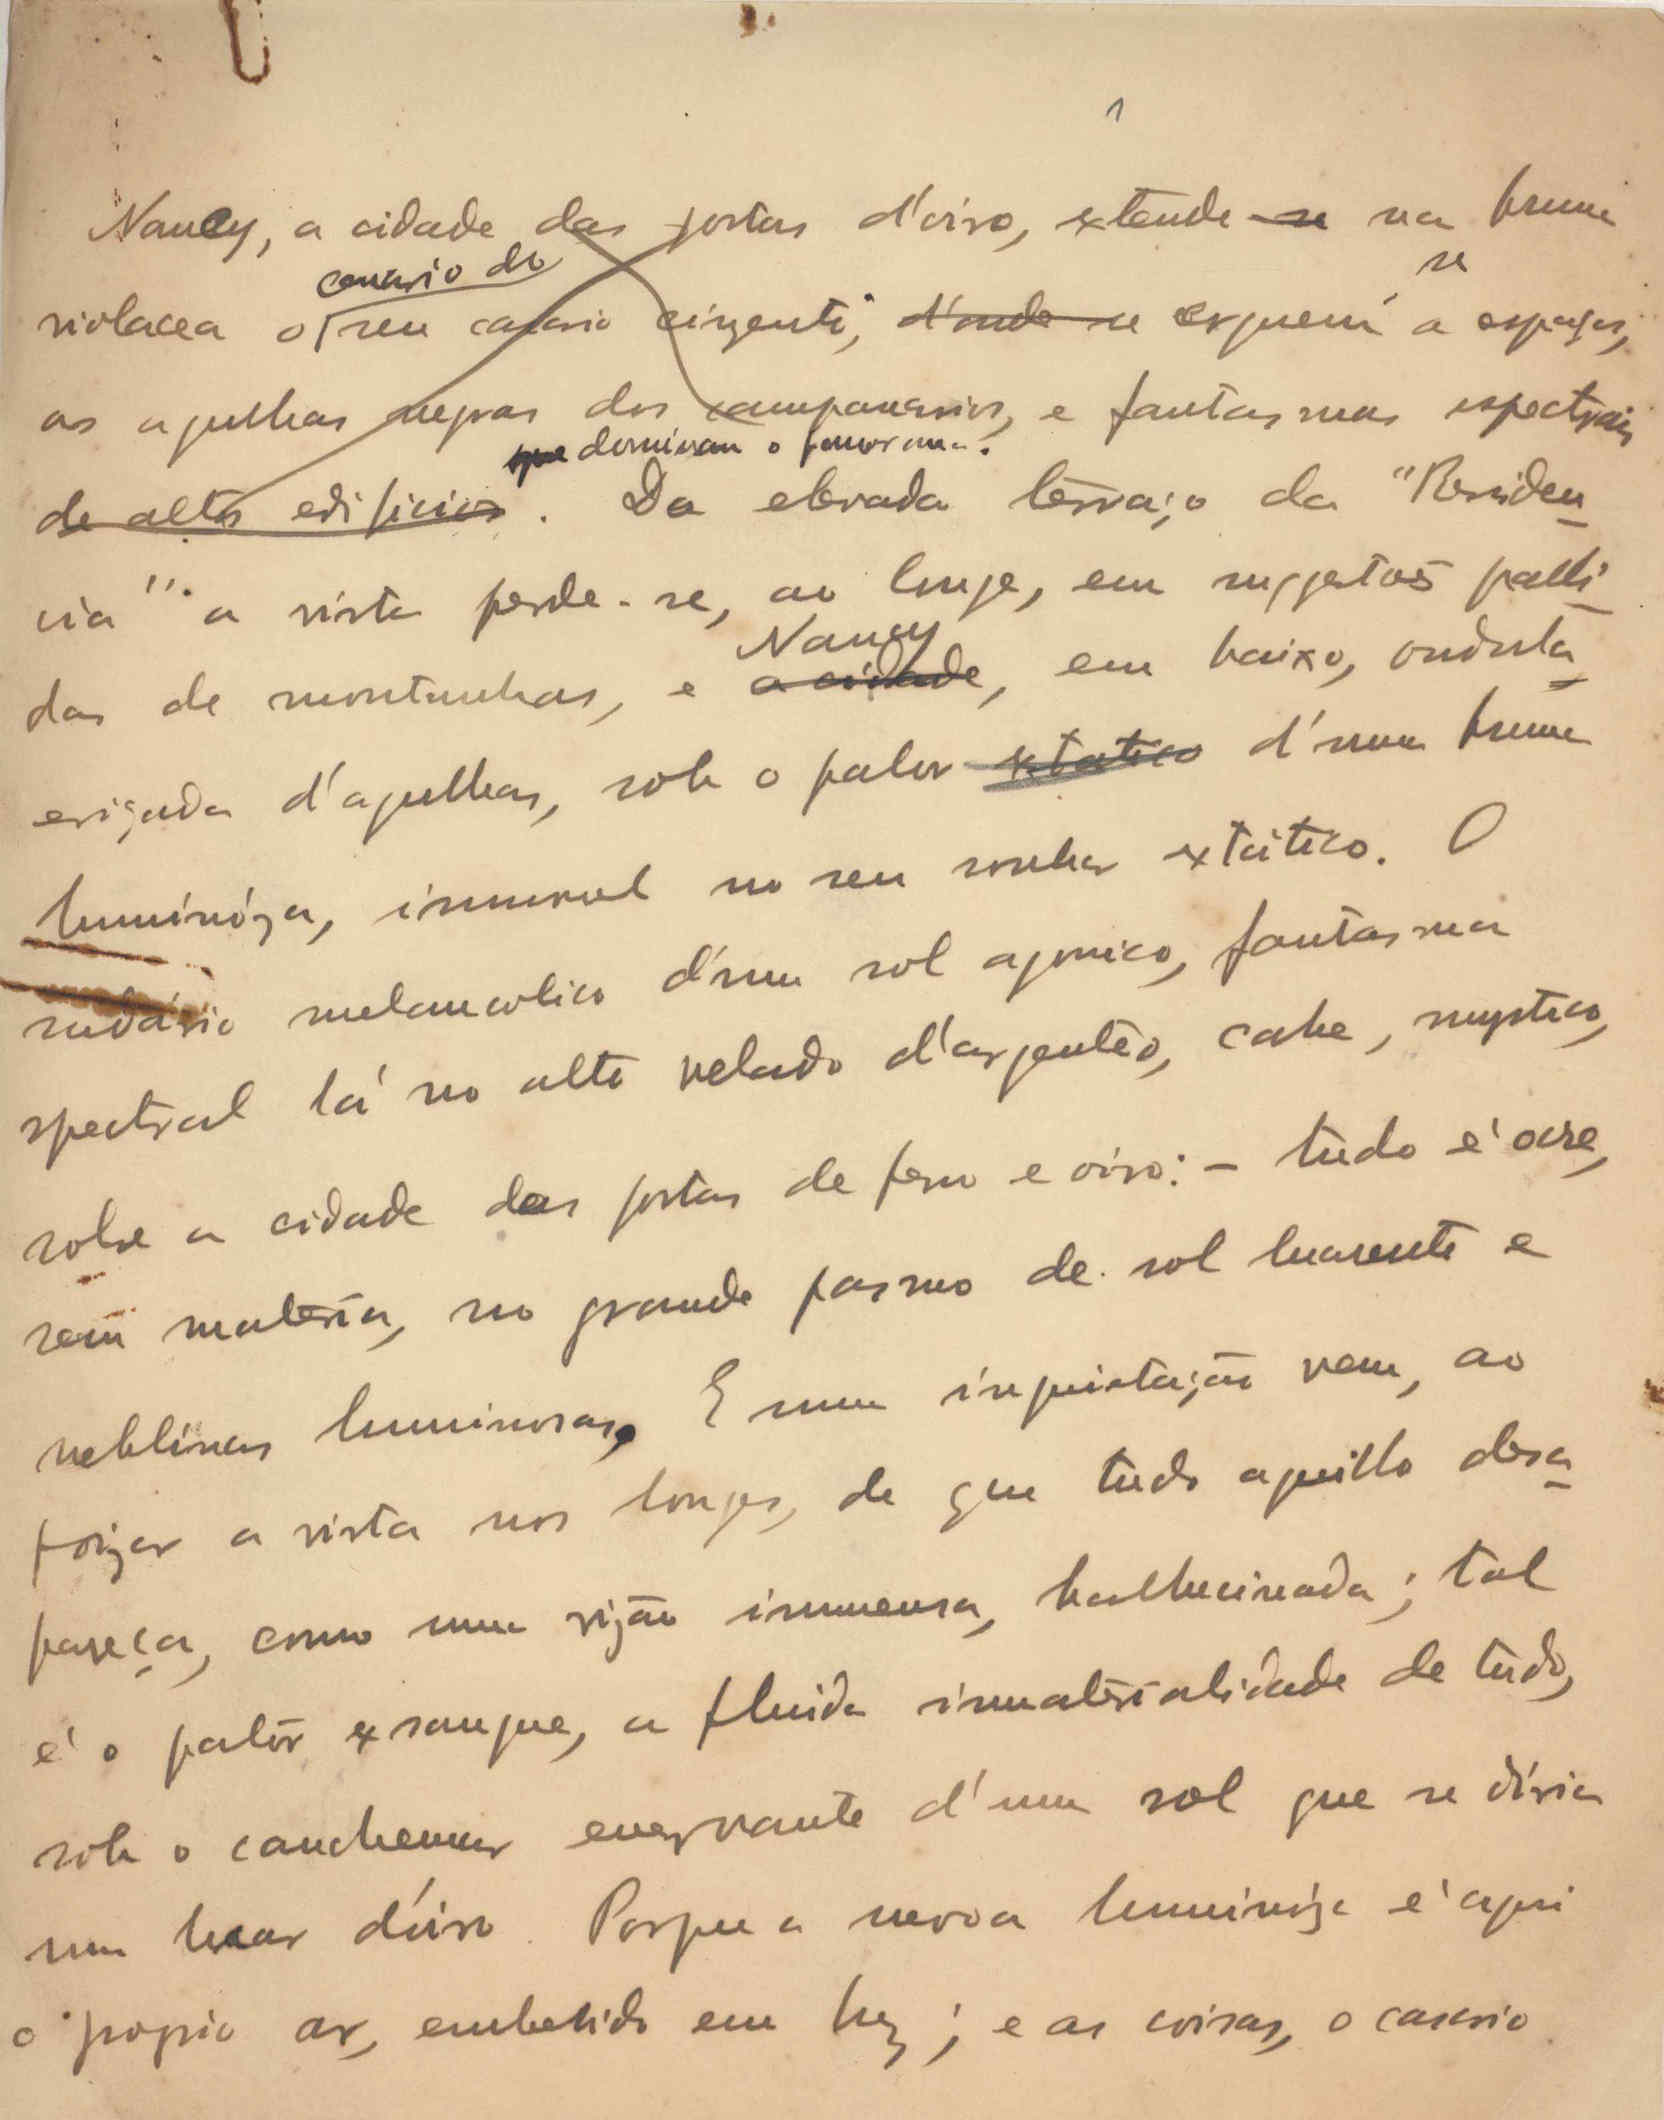 1
Nancy, a cidade das portas d'oiro, extende-se na bruma
cenario do se
violacea o seu casario cinzento, d'onde se erguem a espaços,
as agulhas negras dos campanarios, e fantasmas espectrais
que dominam o panorama.
de altos edificios. Da elevada terraço da "Residen-
cia" a vista perde-se, ao longe, em suggestões palli-
Nancy
das de montanhas, e a cidade, em baixo, ondula
eriçada d'agulhas, sob o palor extatico d'uma bruma
luminóza, immovel no seu sonhar extático. O
sudário melancolico d'um sol agonico, fantasma
spectral lá no alto velado d'argenteo, cahe, mystico,
sobre a cidade das portas de ferro e oiro: - tudo é ocre,
sem materia, no grande pasmo de sol luarento e
neblinas luminosas. E uma inquietação vem, ao
poizar a vista nos longes, de que tudo aquillo desa-
pareça, como uma vizão immensa, halhucinada; tal
é o palôr exsangue, a fluida immaterialidade de tudo,
sob o cauchemar enervante d'um sol que se diria
um luar d'oiro. Porque a nevoa luminóza é aqui
o proprio ar, embebido em luz; e as coisas, o casario